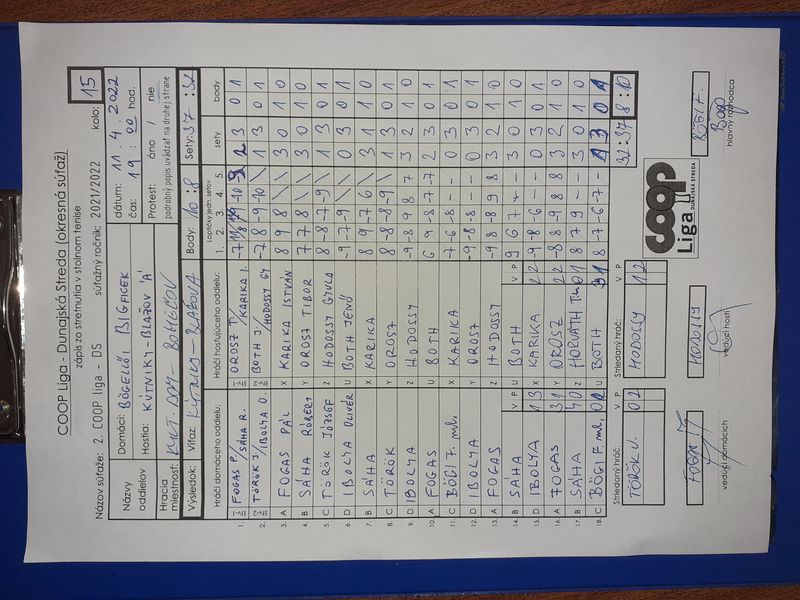 COOP Liga - Dunajská Streda (okresná súťaž)
zápis zo stretnutia v stolnom tenise
Názov súťaže: 2. COOP liga - DS súťažný ročník: 2021/2022 kolo: 15
Názvy oddielov
Domáci: BÖGELLÖ, BIGFICEK dátum: 11. 4. 2022
Hostia: KÚTNIKY-BLAŽOV 'A' čas: 19 : 00 hod.
Hracia miestnosť: Protest: áno / nie
podrobný popis uvádzať na druhej strane
Výsledok: Víťaz: KÚTNIKY - BLAŽOVA Body: 10 : 8 Sety: 37 : 32
Hráči domáceho oddielu: Hráči hosťujúceho oddielu: Lopticky jedn. setov sety body
1. 2. 3. 4. 5.
1. FOGAS P./ SÁHA R. OROSZ T./ KARIKA I. 2 3 0 1
2. TÖRÖK J./ IBOLYA O. BOTH J./ HODOSSY GY -7 8 -9 -10 \ 1 3 0 1
3. A FOGAS PÁL X KARIKA ISTVÁN 8 9 8 \ \ 3 0 1 0
4. B SÁHA RÓBERT Y OROSZ TIBOR 7 7 8 \ \ 3 0 1 0
5. C TÖRÖK JÓZSEF Z HODOSSY GYULA 8 -8 -7 -9 \ 1 3 0 1
6. D IBOLYA OLIVÉR U BOTH JENŐ -9 -7 -9 \ \ 0 3 0 1
7. B SÁHA X KARIKA 8 9 -7 6 \ 3 1 1 0
8. C TÖRÖK Y OROSZ 8 -8 -8 -9 \ 1 3 0 1
9. D IBOLYA Z HODOSSY -9 -8 9 8 7 3 2 1 0
10. A FOGAS U BOTH 6 9 -8 -7 -7 2 3 0 1
11. C BÖGI F. ml. X KARIKA -7 -6 -8 - - 0 3 0 1
12. D IBOLYA Y OROSZ -9 -8 -8 - - 0 3 0 1
13. A FOGAS Z HODOSSY -9 8 -8 9 8 3 2 1 0
V P V P
14. B SÁHA U BOTH 9 6 7 - - 3 0 1 0
15. D IBOLYA 1 3 X KARIKA 2 2 -9 -8 -6 - - 0 3 0 1
16. A FOGAS 3 1 Y OROSZ 2 2 -8 8 -9 8 8 3 2 1 0
17. B SÁHA 4 0 Z HORVÁTH 0 1 8 7 9 - - 3 0 1 0
18. C BÖGI F. ml. 0 2 U BOTH 3 1 8 -7 -6 -7 - 1 3 0 1
32:37 8:10
Striedaný hráč: V P Striedaný hráč: V P
TÖRÖK J. 0 2 HODOSSY 1 2
COOP
Liga DUNAJSKÁ STREDA
FOGAS HODOSSY BÖGI F.
vedúci domácich vedúci hostí hlavný rozhodca